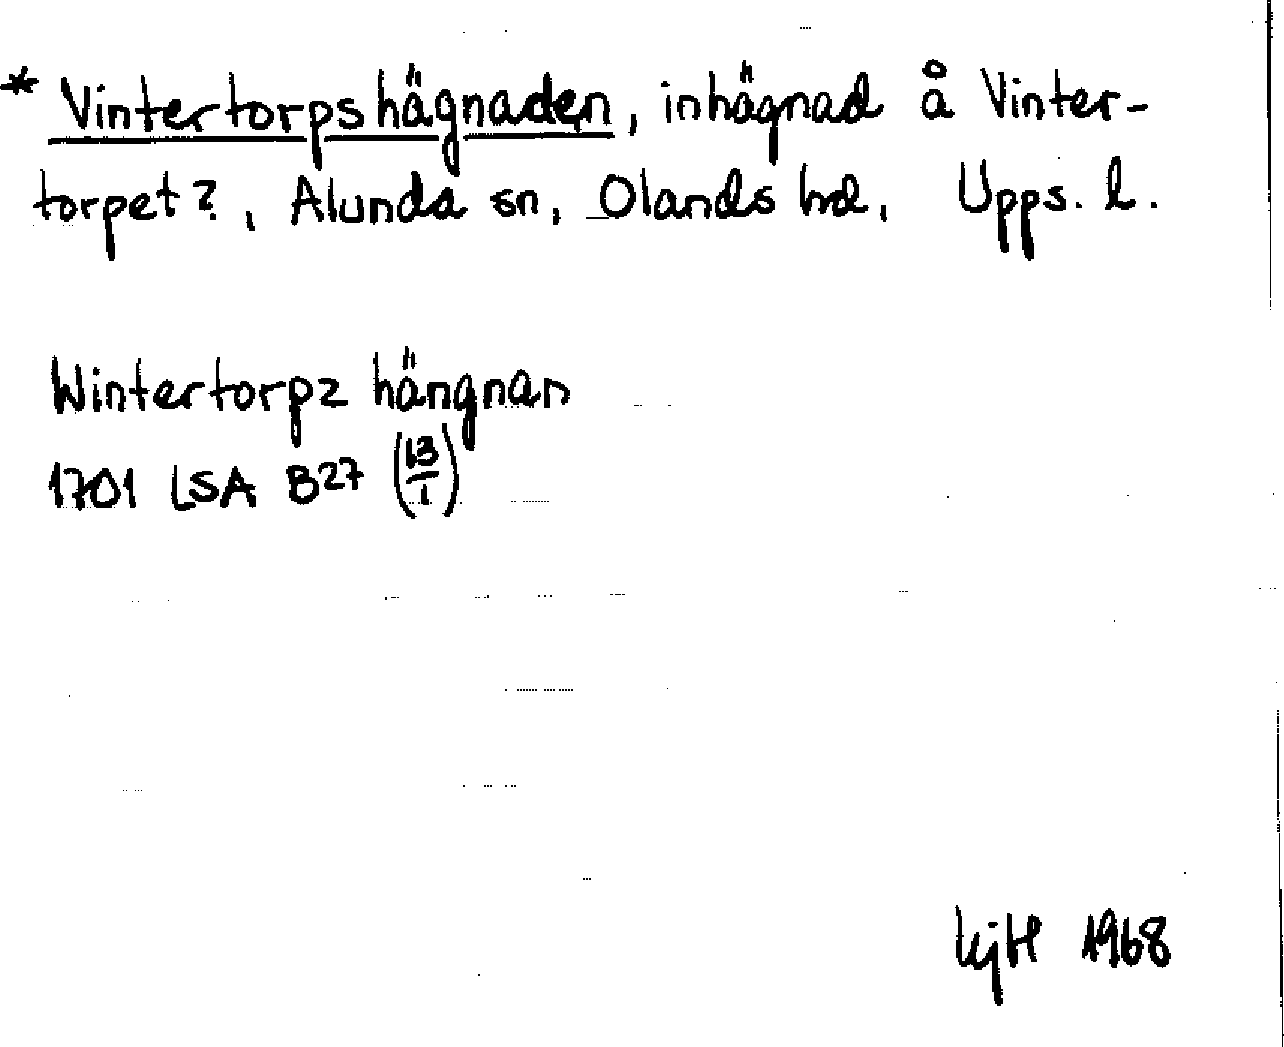 * Vintertorpshägnaden, inhägnad å Vinter-
torpet?, Alunda sn, Olands hd, Upps. l.
Wintertorpz hängnan
1701 LSA B27 (13/1)
1968